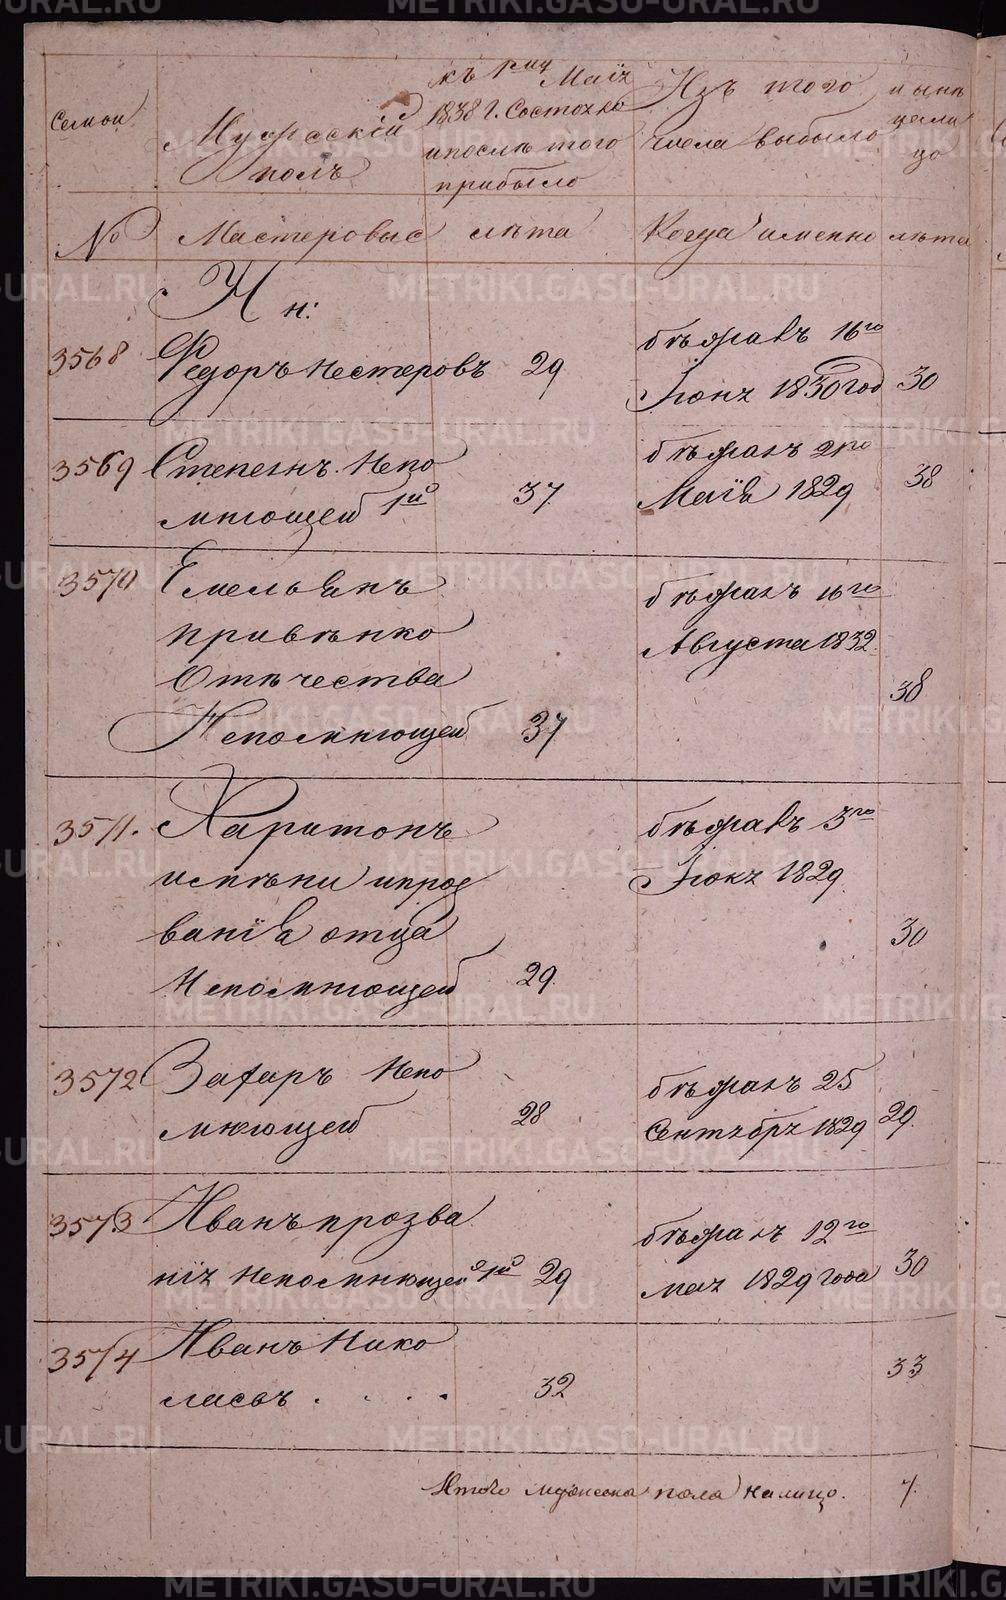 METRIKI.GASO-URAL.RU
Семьи
Мужескій
полъ
1838 г. Состояло
и послѣ того
прибыло
Изъ того
числа выбыло
нынѣ
на лицо
№ Мастеровые лѣта Когда именно лѣта
Н н:
3568 Федоръ Нестеровъ 29 бѣжалъ 16го Іюня 1830 год 30
3569 Степанъ Непо
мнющей 1й 37 бѣжалъ 21го Маія 1829 38
3570 Емельянъ
Отѣчества
Непомнющей 37 бѣжалъ 16го Августа 1832. 38
3571. Харитонъ
имѣни и проз
ванія отца
Непомнющей 29 бѣжалъ 3го Іюня 1829. 30
3572 Захаръ Непо
мнющей 28 бѣжалъ 25 Сентября 1829 29.
3573 Иванъ прозва
нія Непомнющей 1й 29 бѣжалъ 12го мая 1829 года 30
3574 Иванъ Нико
лаевъ . . . . 32 33
Итого мужеска пола на лицо. 7.